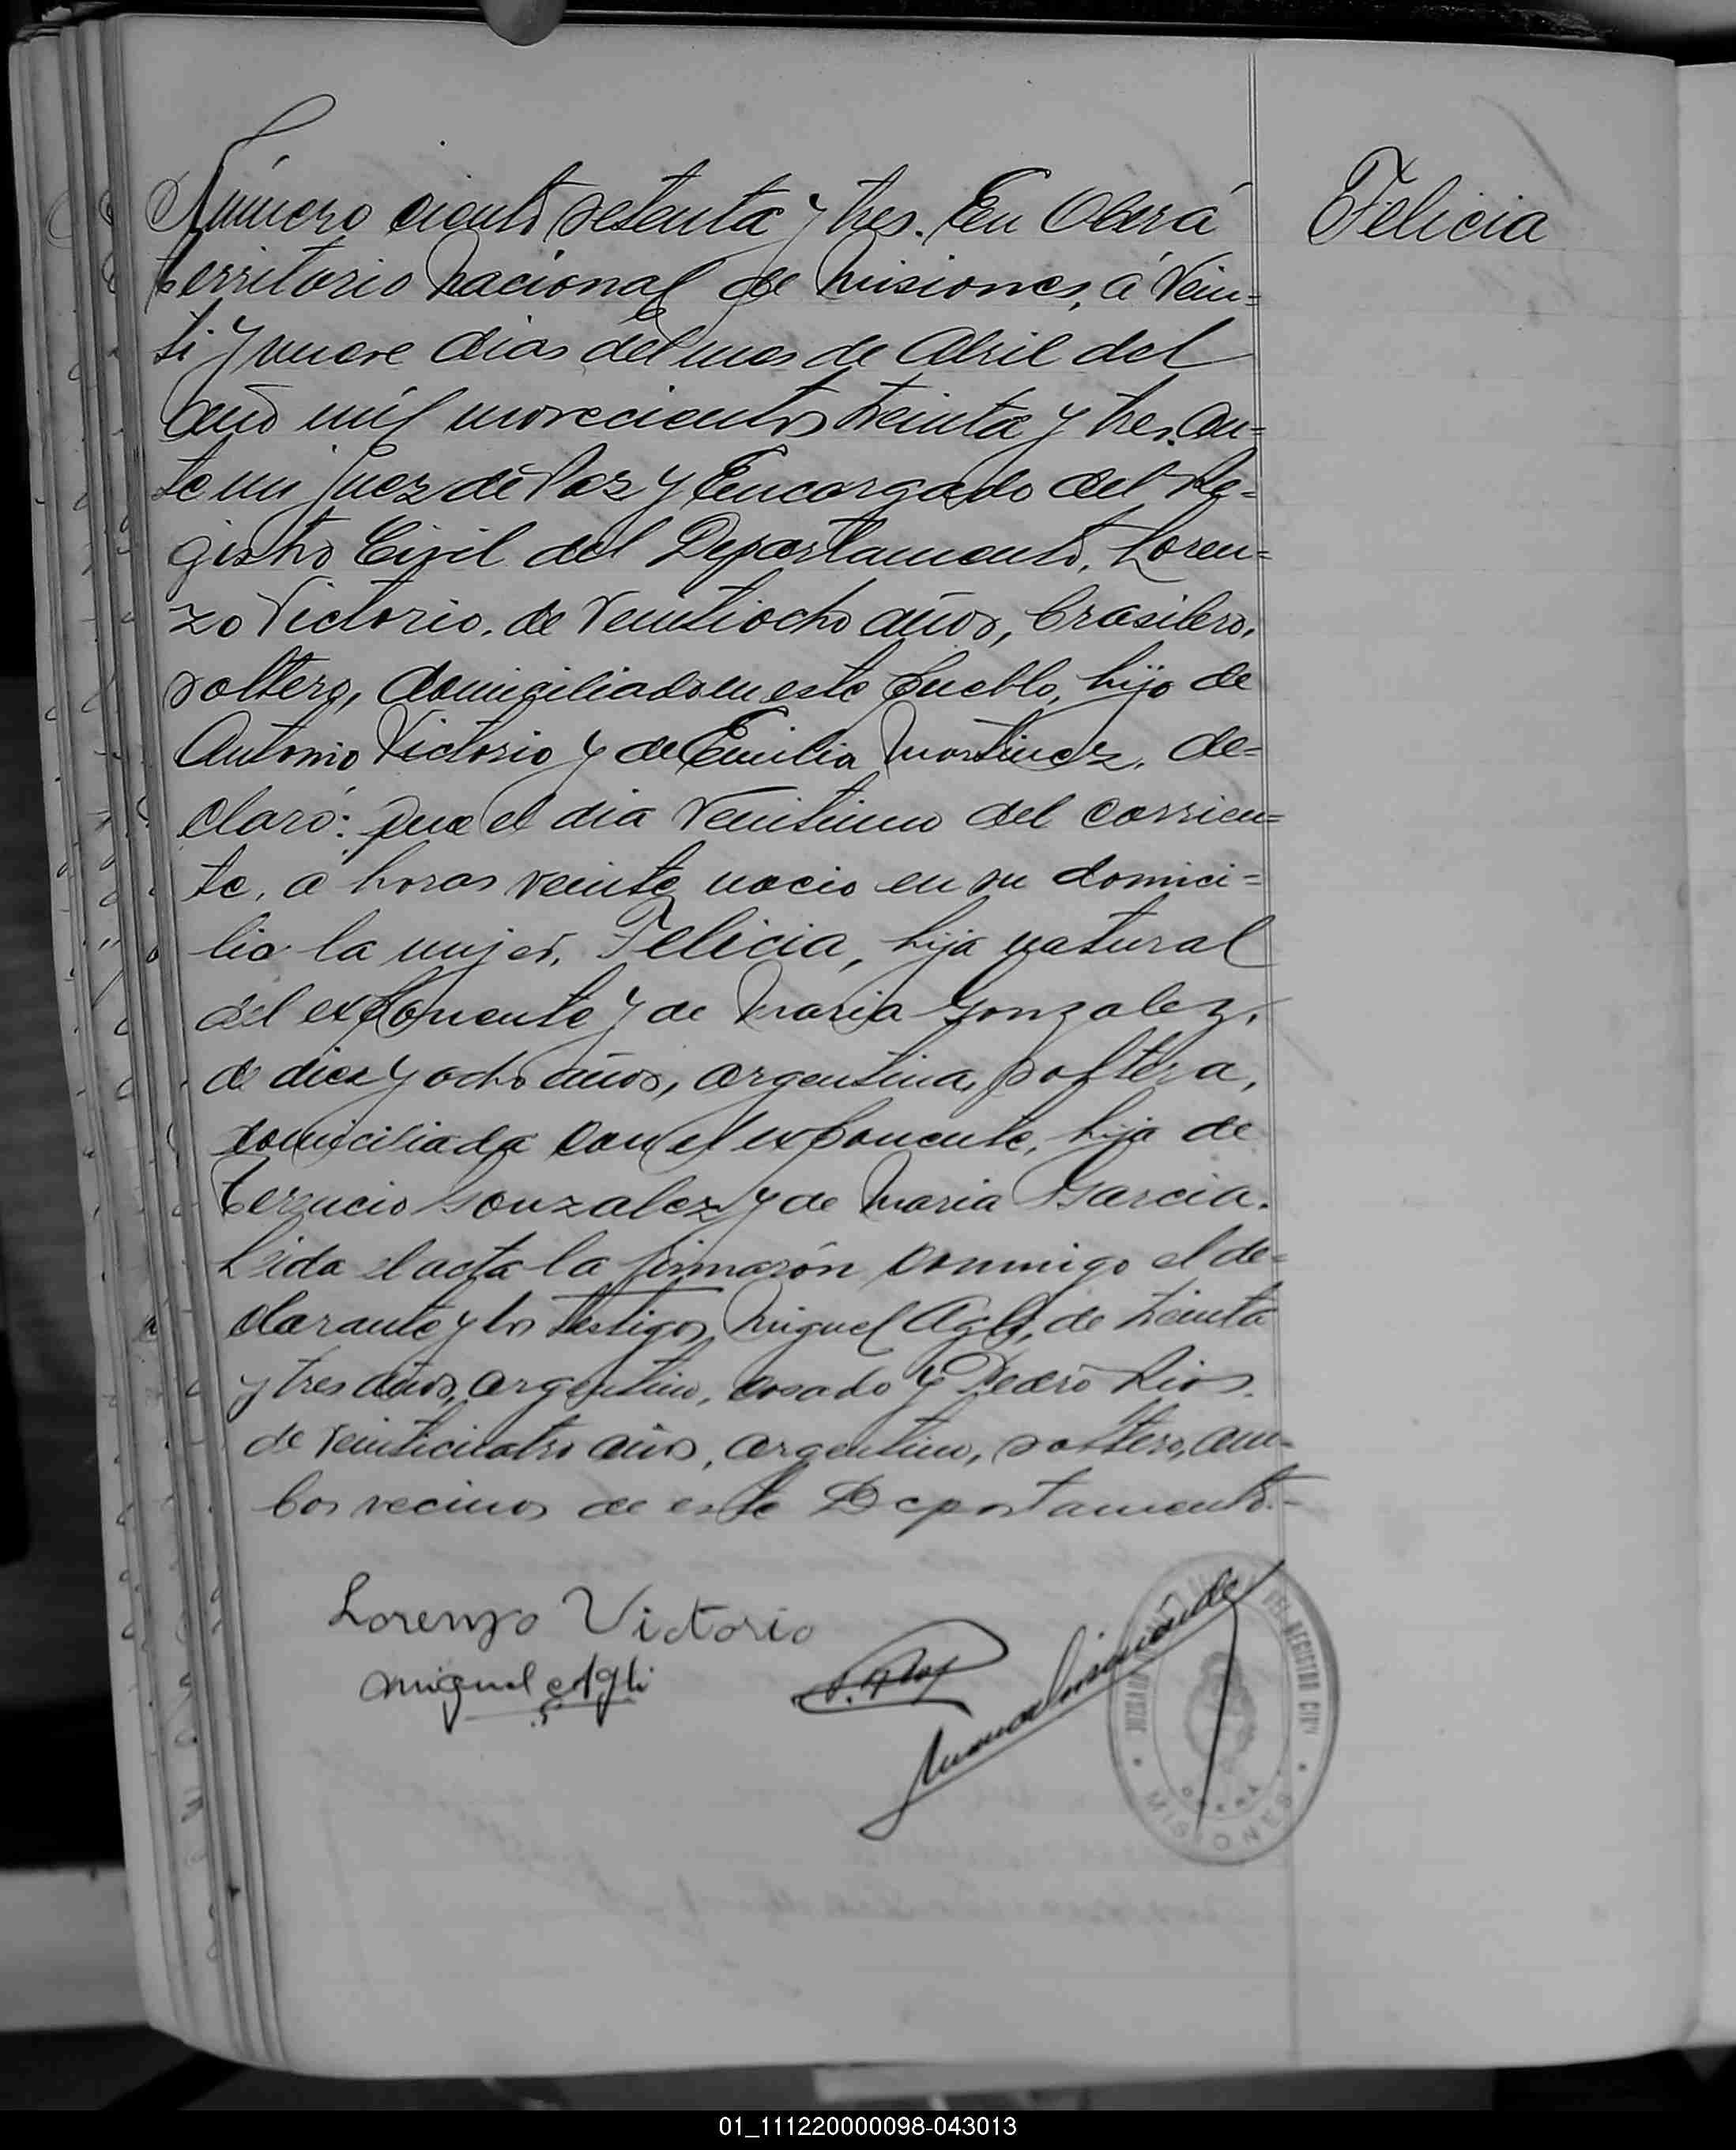 Número ciento setenta y tres. En Oberá
Felicia
territorio nacional de Misiones, á vein=
ti y nueve dias del mes de Abril del
año mil novecientos treinta y tres, an=
te mi Juez de Paz y Encargado del Re=
gistro Civil del Departamento, Loren=
zo Victorio, de veintiocho años, brasilero,
soltero, domiciliado en este pueblo, hijo de
Antonio Victorio y de Emilia Martinez, de=
claró: que el dia veintiuno del corrien=
te, á horas veinte nacio en su domici=
lio la mujer, Felicia, hija natural
del exponente y de Maria Gonzalez,
de diez y ocho años, argentina, soltera,
domiciliada con el exponente, hija de
Gonzalez y de Maria Garcia.
Leida el acta la firmarón conmigo el de=
clarante y los testigos, Miguel Agli, de treinta
y tres años, argentino, casado y Pedro Rios,
de veinticuatro años, argentino, soltero, am=
bos vecinos de este Departamento.-
Lorenzo Victorio
Miguel Agli
DEL REGISTRO CIVIL
MISIONES
01_111220000098-043013